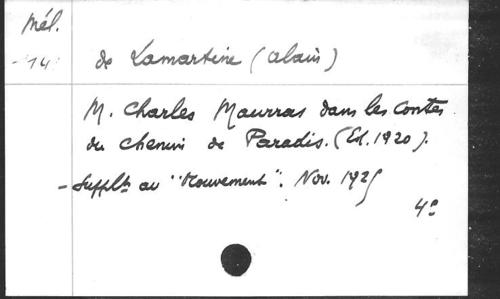 Mél.
-14 de Lamartine (Alain)
M. Charles Maurras dans les Contes
du Chemin de Paradis. (Ed. 1920).
- Supplt au "Mouvement". Nov. 1925
4º